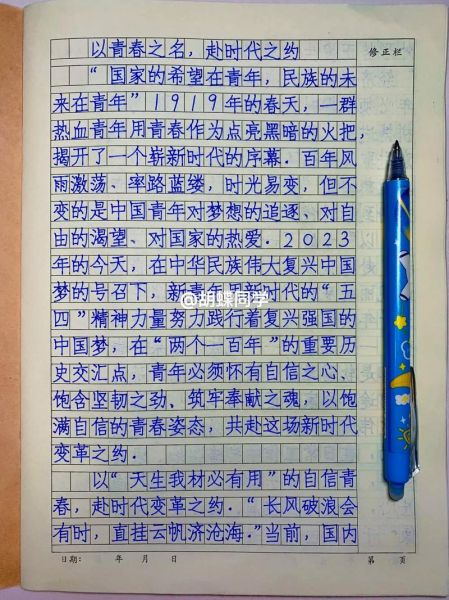 以青春之名，赴时代之约
修正栏
“国家的希望在青年，民族的未
来在青年”1919年的春天，一群
热血青年用青春作为点亮黑暗的火把，
揭开了一个崭新时代的序幕．百年风
雨激荡、率路蓝缕，时光易变，但不
变的是中国青年对梦想的追逐、对自
由的渴望、对国家的热爱．2023
年的今天，在中华民族伟大复兴中国
梦的号召下，新青年用新时代的“五
@胡蝶同学
四”精神力量努力践行着复兴强国的
中国梦，在“两个一百年”的重要历
史交汇点，青年必须怀有自信之心、
饱含坚韧之劲、筑牢奉献之魂，以饱
满自信的青春姿态，共赴这场新时代
变革之约．
以“天生我材必有用”的自信青
春，赴时代变革之约．“长风破浪会
有时，直挂云帆济沧海．”当前，国内
日期： 年 月 日 第 页